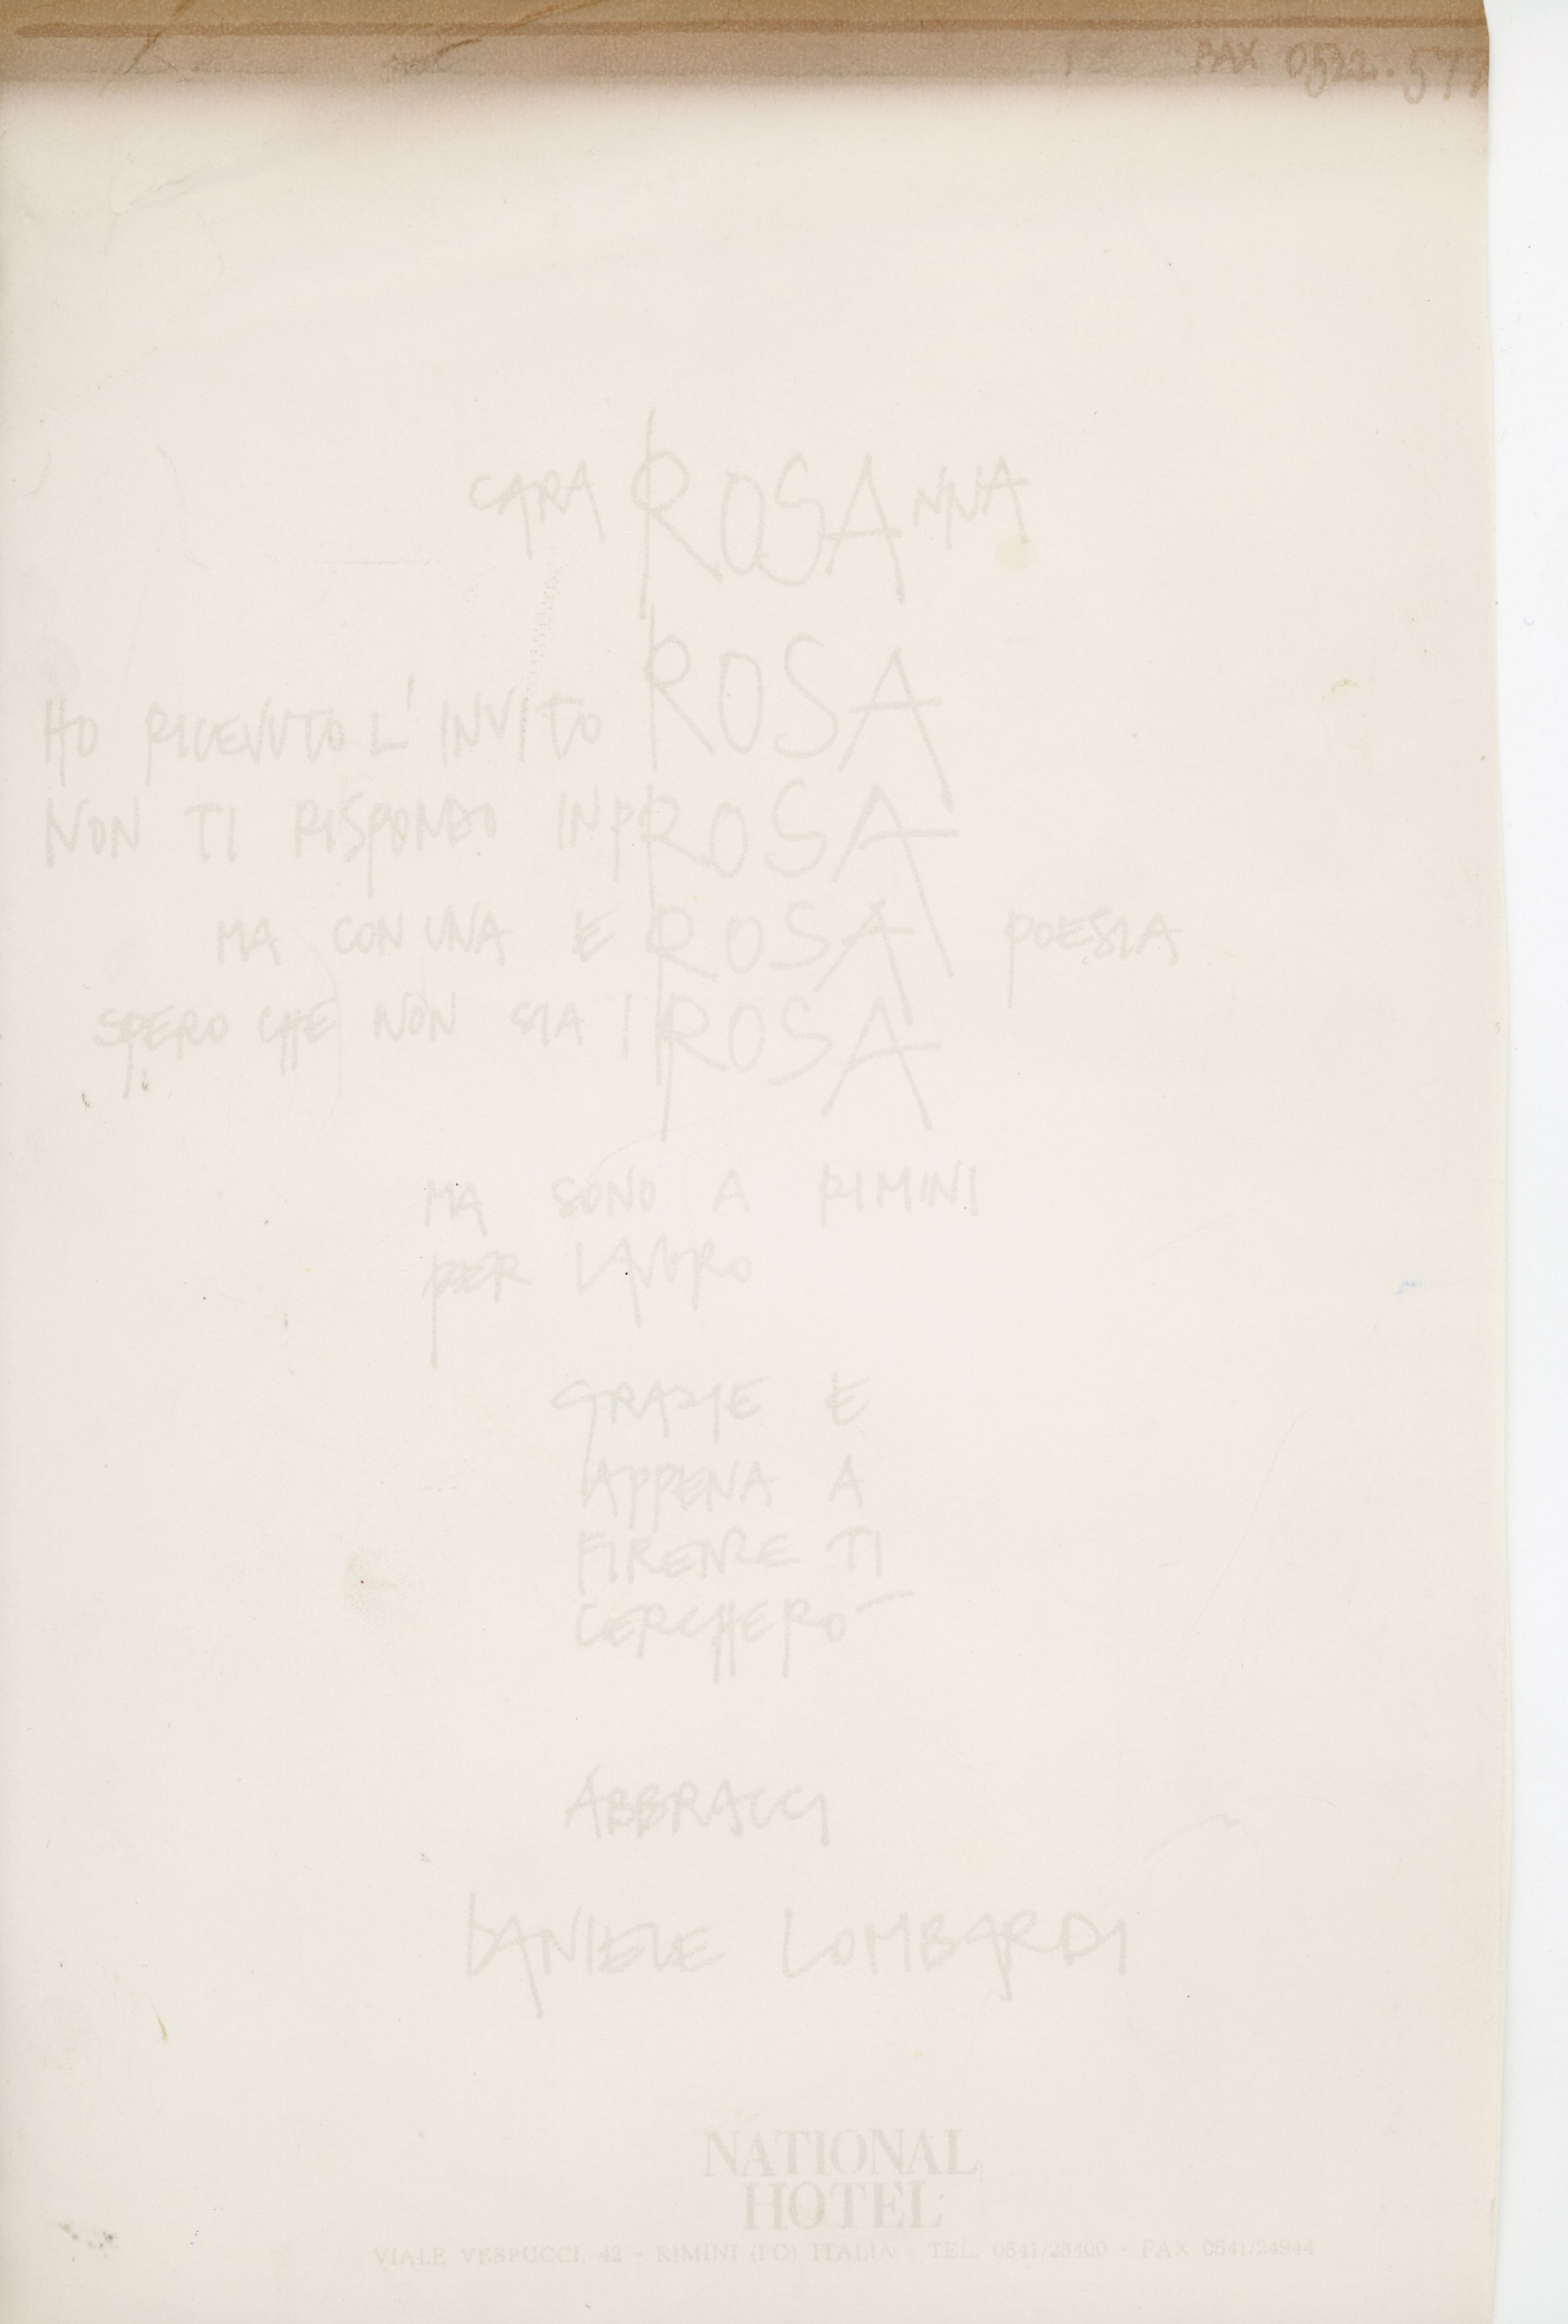 FAX 0522.577
CARA ROSANNA
ROSA
HO RICEVUTO L'INVITO ROSA
NON TI RISPONDO IN PROSA
MA CON UNA EROSA POESIA
SPERO CHE NON SIA IROSA
MA SONO A RIMINI
PER LAVORO
GRAZIE E
APPENA A
FIRENZE TI
CERCHERÒ
ABBRACCI
DANIELE LOMBARDI
NATIONAL
HOTEL
VIALE VESPUCCI, 42 - RIMINI (FO) ITALIA - TEL. 0541/25400 - FAX 0541/24944